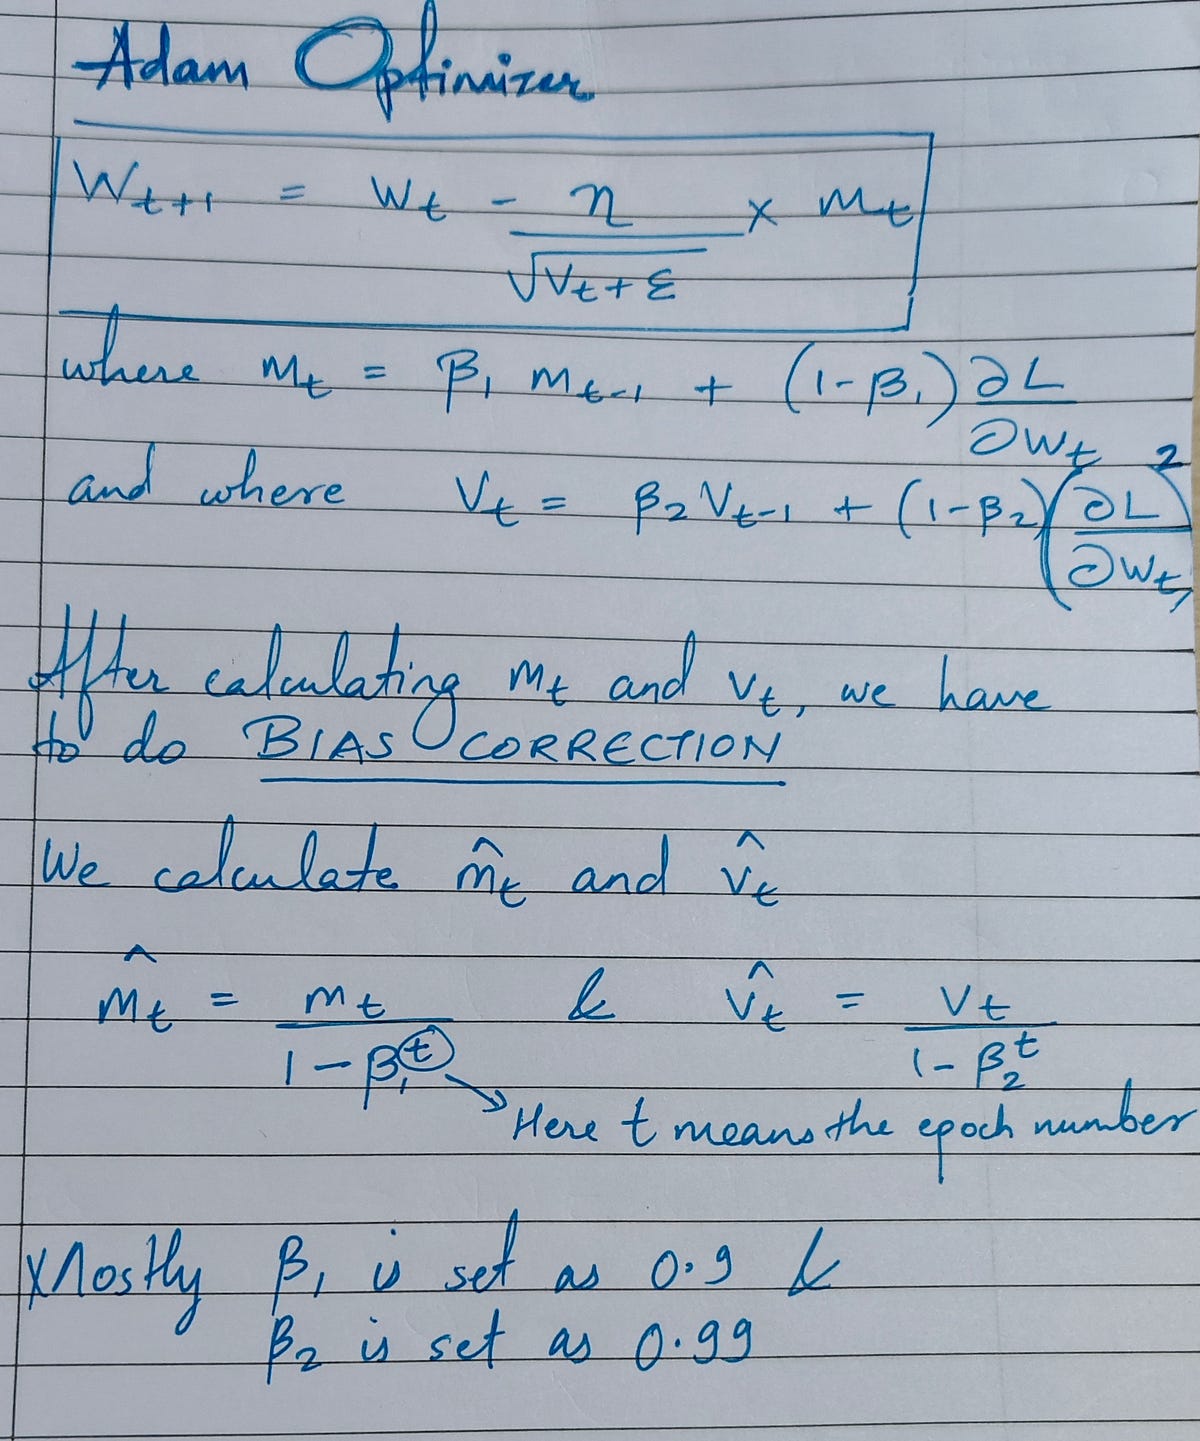 Adam Optimizer
W_{t+1} = W_t - η/√(V_t + ε) × m_t
where m_t = β_1 m_{t-1} + (1-β_1) ∂L/∂W_t
and where V_t = β_2 V_{t-1} + (1-β_2) (∂L/∂W_t)^2
After calculating m_t and v_t, we have
to do BIAS CORRECTION
We calculate m̂_t and v̂_t
m̂_t = m_t/(1-β_1^t) & v̂_t = v_t/(1-β_2^t)
Here t means the epoch number
Mostly β_1 is set as 0.9 &
β_2 is set as 0.99